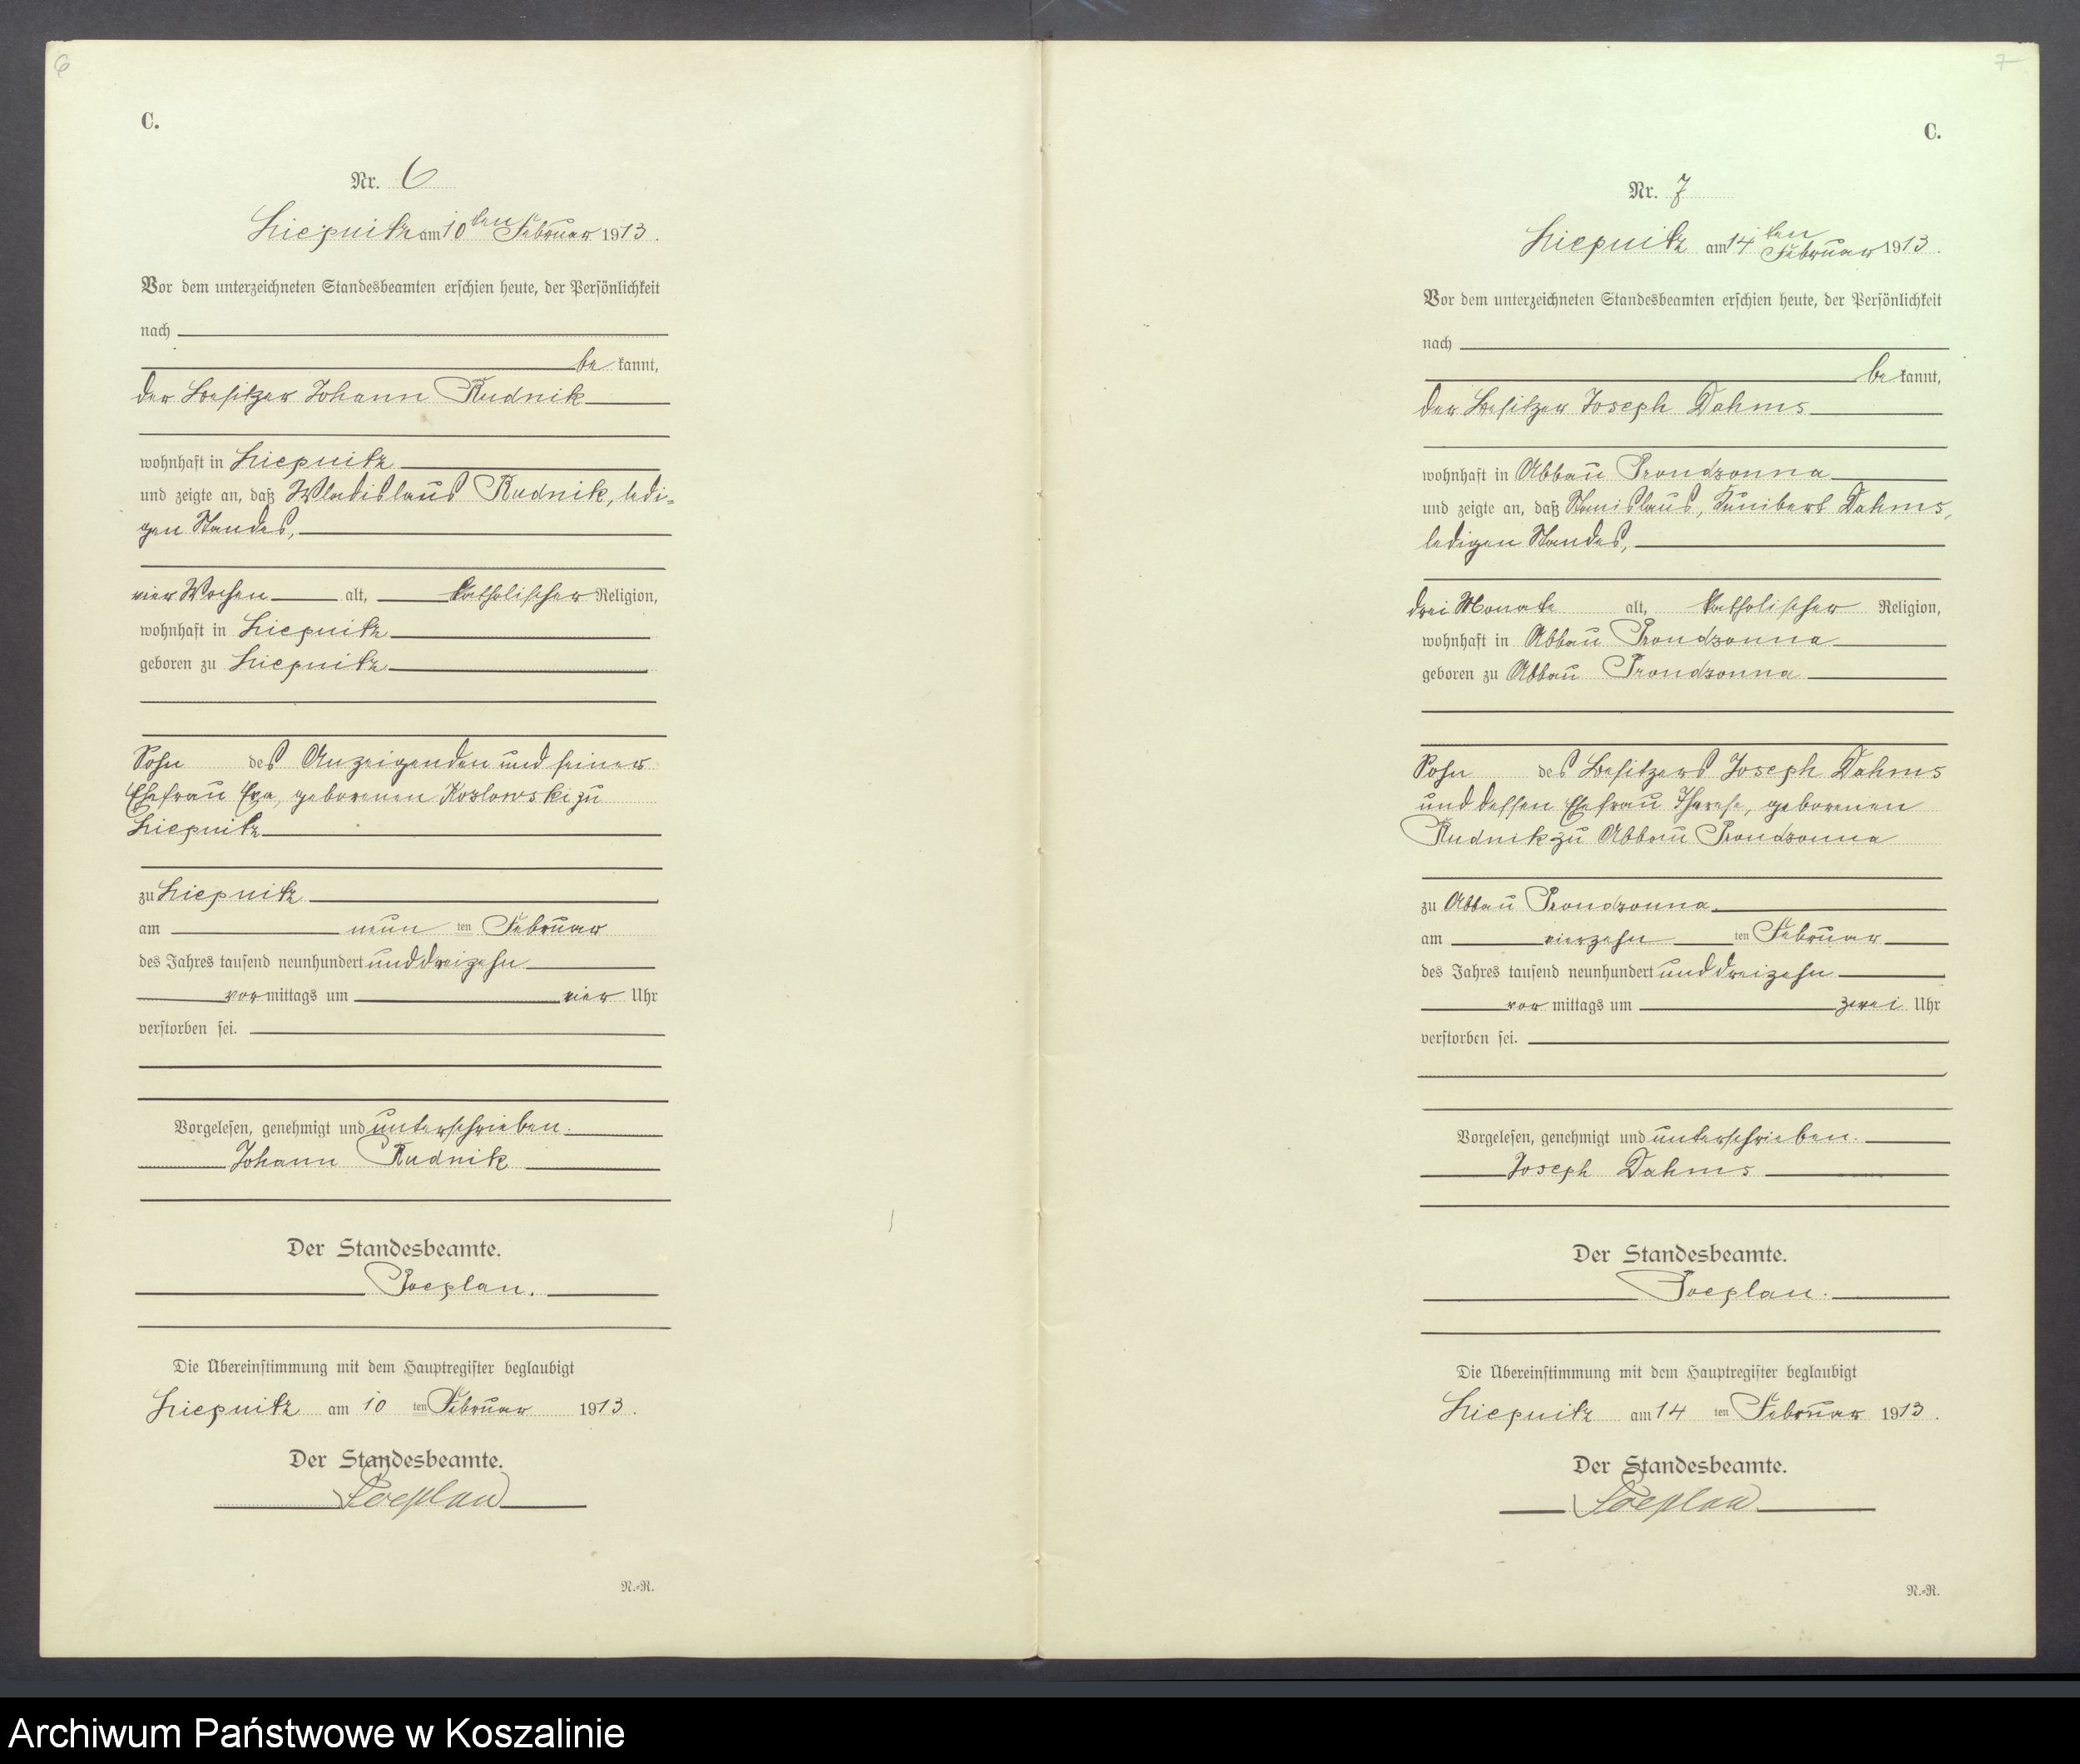 6
C.
Nr. 6
Liepnitz am 10ten Februar 1913.
Vor dem unterzeichneten Standesbeamten erschien heute, der Persönlichkeit
nach
be kannt,
der Besitzer Johann Rudnik
wohnhaft in Liepnitz
und zeigte an, daß Wladislaus Rudnik, ledi-
gen Standes,
vier Wochen alt, katholischer Religion,
wohnhaft in Liepnitz
geboren zu Liepnitz
Sohn des Anzeigenden und seiner
Ehefrau Eva, geborenen Kozlowski zu
Liepnitz
zu Liepnitz
am neun ten Februar
des Jahres tausend neunhundert und dreizehn
vor mittags um vier Uhr
verstorben sei.
Vorgelesen, genehmigt und unterschrieben.
Johann Rudnik
Der Standesbeamte.
Poeplau.
Die Übereinstimmung mit dem Hauptregister beglaubigt
Liepnitz am 10 ten Februar 1913.
Der Standesbeamte.
Poeplau
N.-R.
7
C.
Nr. 7
Liepnitz am 14ten Februar 1913.
Vor dem unterzeichneten Standesbeamten erschien heute, der Persönlichkeit
nach
be kannt,
der Besitzer Joseph Dahms
wohnhaft in Abbau Prondzonna
und zeigte an, daß Stanislaus, Kunibert Dahms,
ledigen Standes,
drei Monate alt, katholischer Religion,
wohnhaft in Abbau Prondzonna
geboren zu Abbau Prondzonna
Sohn des Besitzers Joseph Dahms
und dessen Ehefrau Therese, geborenen
Rudnik zu Abbau Prondzonna
zu Abbau Prondzonna
am vierzehn ten Februar
des Jahres tausend neunhundert und dreizehn
vor mittags um zwei Uhr
verstorben sei.
Vorgelesen, genehmigt und unterschrieben.
Joseph Dahms
Der Standesbeamte.
Poeplau.
Die Übereinstimmung mit dem Hauptregister beglaubigt
Liepnitz am 14 ten Februar 1913.
Der Standesbeamte.
Poeplau
N.-R.
Archiwum Państwowe w Koszalinie